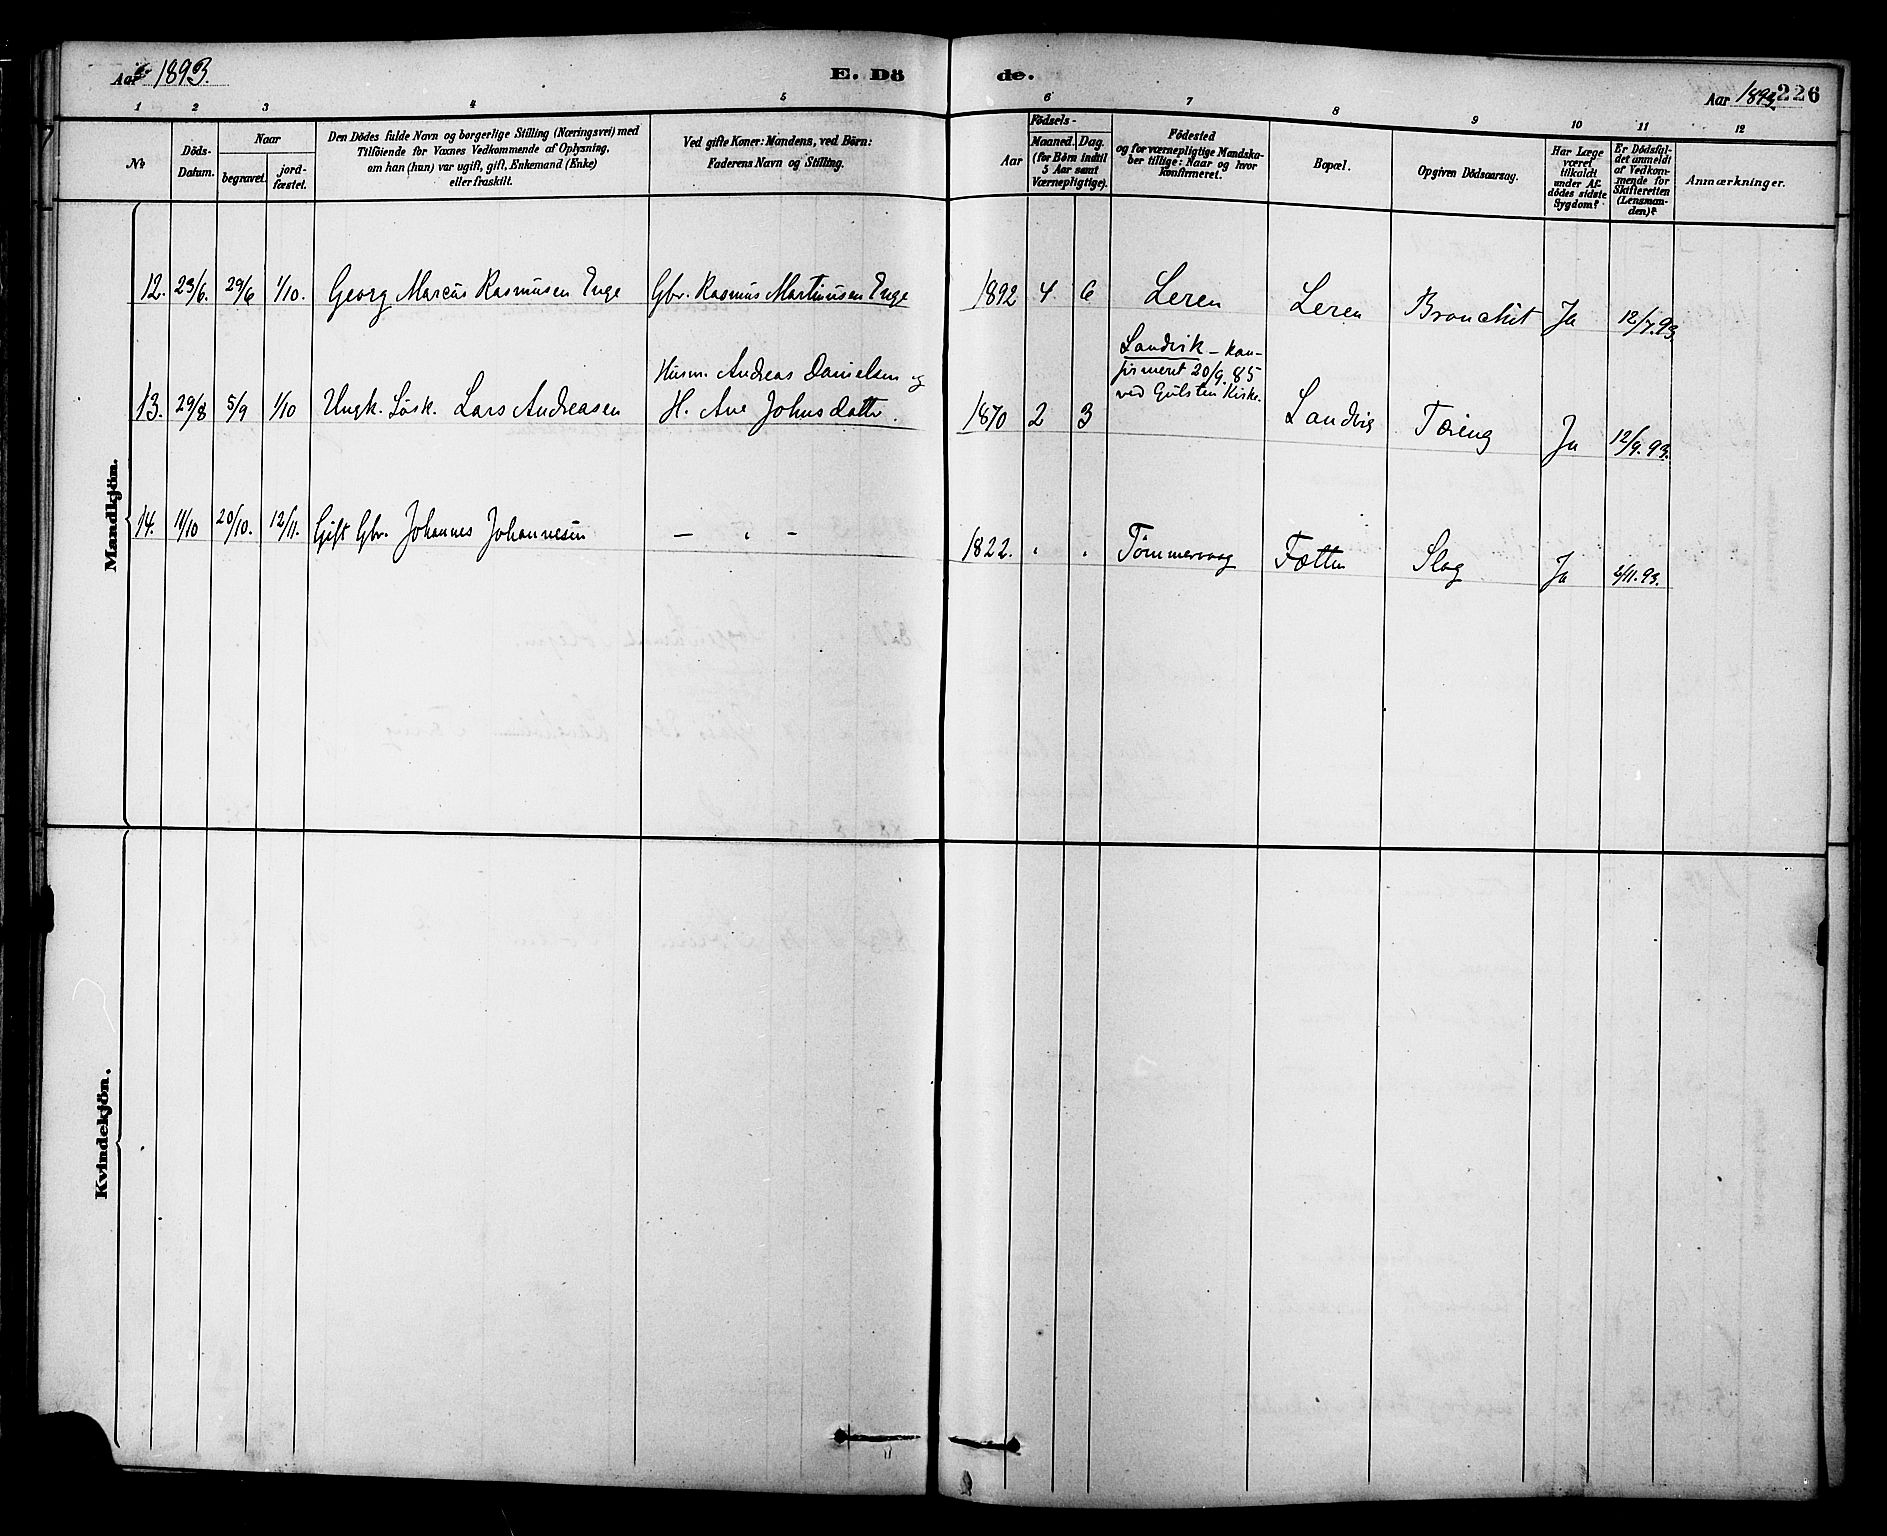 Aar 1893.
E. Dö de.
Aar 1893. 226
1 2 3 4 5 6 7 8 9 10 11 12
No
Döds-
Datum.
Naar
begravet.
jord-
fæstet.
Den Dödes fulde Navn og borgerlige Stilling (Næringsvei) med
Tilföiende for Voxnes Vedkommende af Oplysning,
om han (hun) var ugift, gift, Enkemand (Enke)
eller fraskilt.
Ved gifte Koner: Mandens, ved Börn:
Faderens Navn og Stilling.
Födsels-
Aar
Maaned. Dag.
(for Börn indtil
5 Aar samt
Værnepligtige).
Födested
og for værnepligtige Mandska-
ber tillige: Naar og hvor
konfirmeret.
Bopæl.
Opgiven Dödsaarsag.
Har Læge
været
tilkaldt
under Af-
dödes sidste
Sygdom?
Er Dödsfal-
det anmeldt
af Vedkom-
mende for
Skifteretten
(Lensman-
den)?
Anmærkninger.
Mandkjön.
12. 23/6. 29/6 1/10. Georg Marcus Rasmusen Enge Gbr. Rasmus Martinusen Enge 1892 4. 6 Leren Leren Bronchit Ja 12/7.93.
Husm. Andreas Danielsen og
Landvik - kon-
firmeret 20/9.85
ved Gulsten Kirke.
13. 29/8 5/9 1/10 Ungk. Lösk. Lars Andreasen H. Ane Johnsdatter. 1870 2 3 Landvig Tæring Ja 12/9.93.
14. 11/10 20/10. 12/11. Gift Gbr. Johannes Johannesen — " - 1822. " " Tömmervaag Fætten Slag Ja /11.93.
Kvindekjön.